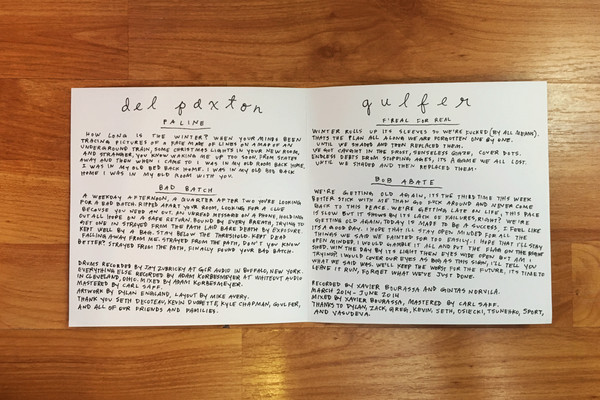 del paxton
PALINE
HOW LONG IS THE WINTER? WHEN YOUR MINDS BEEN
TRACING PICTURES OF A FACE MADE OF LINES ON A MAP OF AN
UNDERGROUND TRAIN, SOME CHRISTMAS LIGHTS IN YOUR ROOM,
AND STRANGER, YOU KNOW WAKING ME UP TOO SOON. FROM STATES
AWAY AND THEN WHEN I CAME TO I WAS IN MY OLD ROOM BACK HOME,
I WAS IN MY OLD BED BACK HOME. I WAS IN MY OLD BED BACK
HOME I WAS IN MY OLD ROOM WITH YOU.
BAD BATCH
A WEEKDAY AFTERNOON, A QUARTER AFTER TWO YOU'RE LOOKING
FOR A BAD BATCH. RIPPED APART YOUR ROOM, LOOKING FOR A CLUE
BECAUSE YOU NEED AN OUT. AN UNREAD MESSAGE ON A PHONE, HOLDING
OUT ALL HOPE ON A SAFE RETURN. BOUND BY EVERY BREATH, TRYING TO
GET ONE IN STRAYED FROM THE PATH LAID BARE DEATH BY EXPOSURE
KEPT WELL BY A BAG. STAY BELOW THE THRESHOLD. KEPT DEAD
FALLING AWAY FROM ME. STRAYED FROM THE PATH, DON'T YOU KNOW
BETTER? STRAYED FROM THE PATH, FINALLY FOUND YOUR BAD BATCH.
DRUMS RECORDED BY JAY ZUBRICKY AT GCR AUDIO IN BUFFALO, NEW YORK.
EVERYTHING ELSE RECORDED BY ADAM KORBESMEYER AT WHITEOUT AUDIO
IN CLEVELAND, OHIO. MIXED BY ADAM KORBESMEYER.
MASTERED BY CARL SAFF.
ARTWORK BY DYLAN ENGLAND, LAYOUT BY MIKE AVERY.
THANK YOU SETH DECOTEAU, KEVIN DUQUETTE, KYLE CHAPMAN, GULFER,
AND ALL OF OUR FRIENDS AND FAMILIES.
gulfer
F'REAL FOR REAL
WINTER ROLLS UP ITS SLEEVES SO WE'RE FUCKED (BY ALL MEANS).
THATS THE PLAN ALL ALONG WE ARE FORGOTTEN ONE BY ONE.
UNTIL WE SHADED AND THEN REPLACED THEM.
WE GOT CAUGHT IN THE FROST, SENSELESS GOATS, COVER BITS
ENDLESS DEBTS FROM STIPPING AGES, ITS A GAME WE ALL LOST.
UNTIL WE SHADED AND THEN REPLACED THEM.
BOB ABATE
WE'RE GETTING OLD AGAIN, ITS THE THIRD TIME THIS WEEK
BETTER STICK WITH ME THAN GO FUCK AROUND AND NEVER COME
BACK TO THIS PEACE. WE'RE GETTING LATE ON LIFE, THIS PACE
IS SLOW BUT IT SHOWS BY ITS LACK OF FAILURES, RIGHT? WE'RE
GETTING OLD AGAIN, TODAY IS MADE TO BE A SUCCESS. I FEEL LIKE
ITS A GOOD DAY. I HOPE THAT I'LL STAY OPEN MINDED FOR ALL THE
THINGS WE SAID WE PAINTED FAR TOO EASILY. I HOPE THAT I'LL STAY
OPEN MINDED. I WOULD GAMBLE IT ALL AND PUT THE FLAG ON THE
SHED. WIN THE DAY BY ITS LIGHT THEN EYES WIDE OPEN BUT AM I
TRYING? I WOULD COVER OUR EYES AS FOR THIS SIGN, I'LL TELL YOU
WHAT WE SAID WAS. WE'LL KEEP THE WORDS FOR THE FUTURE, ITS TIME TO
LEAVE IT RUN, FORGET WHAT WE'VE JUST DONE.
RECORDED BY XAVIER BOURASSA AND GINTAS NORVILA.
MARCH 2014 - JUNE 2014
MIXED BY XAVIER BOURASSA, MASTERED BY CARL SAFF.
THANKS TO DYLAN, ZACK, GREG, KEVIN, SETH, OSIECKI, TSUNEHRO, SPORT,
AND VASUDEVA.